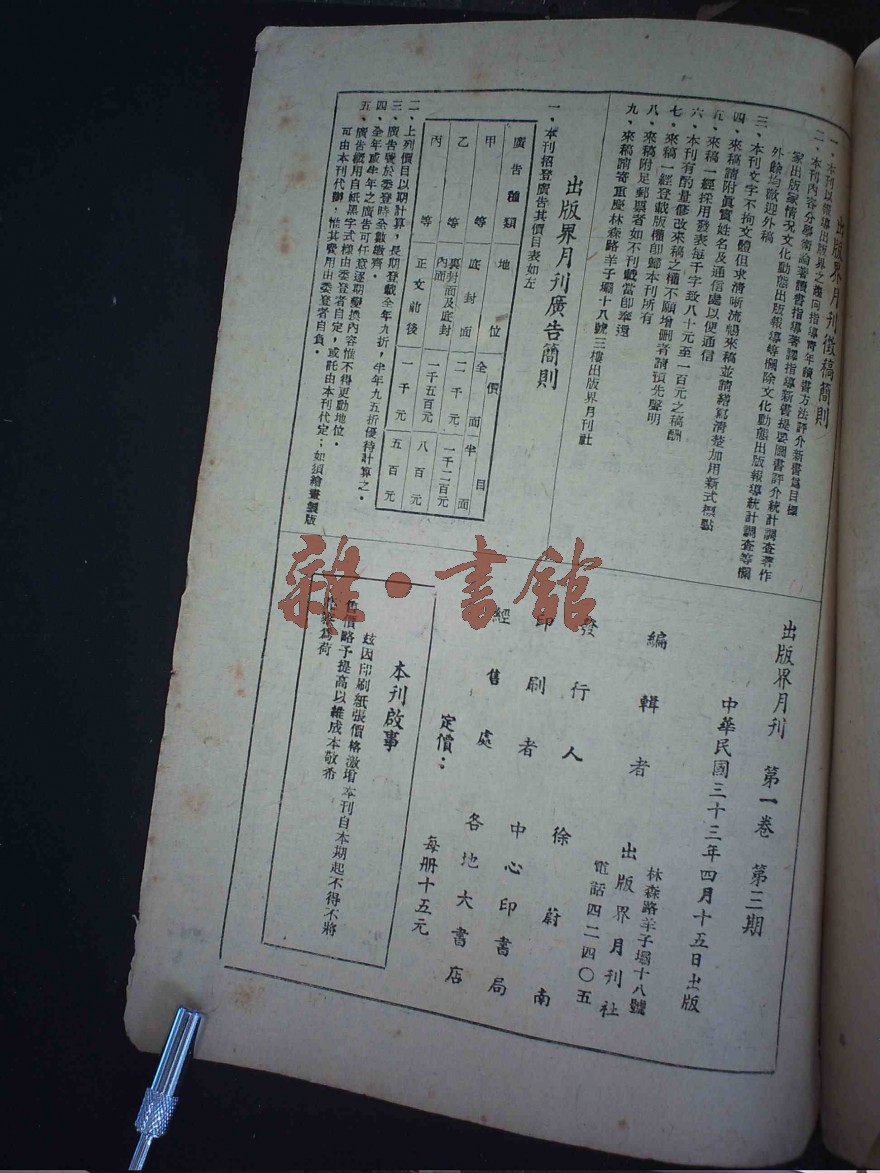 出版界月刋徵稿簡則
一、本刋以報導出版界之趨向指導青年讀書方法評介新書爲目標
二、本刋內容分學術論著讀書指導著譯指導新書提要圖書評介統計調查著作
家出版家情況文化動態出版報導等欄除文化動態出版報導統計調查等欄
外餘均歡迎外稿
三、本刋文字不拘文體但求清晰流暢來稿並請繕寫清楚加用新式標點
四、來稿請附眞實姓名及通信處以便通信
五、來稿一經採用發表每千字致八十元至一百元之稿酬
六、本刋有酌量修改來稿之權不願增删者請預先聲明
七、來稿一經登載版權即歸本刋所有
八、來稿附足郵票者如不刋載當即奉還
九、來稿請寄重慶林森路羊子壩十八號三樓出版界月刋社
出版界月刋廣告簡則
一、本刋招登廣告其價目表如左
廣告種類 地位 價目
全面 半面
甲等 底封面 二千元 一千二百元
乙等 裏封面及底封內面 一千五百元 八百元
丙等 正文前後 一千元 五百元
二、上列價目以期計算，長期登載全年九折，半年九五折優待計算之。
三、廣告費於委登時全數繳齊。
四、全年或半年之廣告可任意逐期變換內容惟不得更動地位。
五、廣告概用白紙黑字式樣由委登者自定，或託由本刋代定；如須繪畫製版
可由本刋代辦，惟其費用由委登者自負。
出版界月刋 第一卷 第三期
中華民國三十三年四月十五日出版
編輯者 出版界月刋社
林森路羊子壩十八號
電話四二四〇五
發行人 徐蔚南
印刷者 中心印書局
經售處 各地大書店
定價： 每册十五元
本刋啟事
玆因印刷紙張價格激增本刋自本期起不得不將
售價略予提高以維成本敬希
爲荷
雜·書館